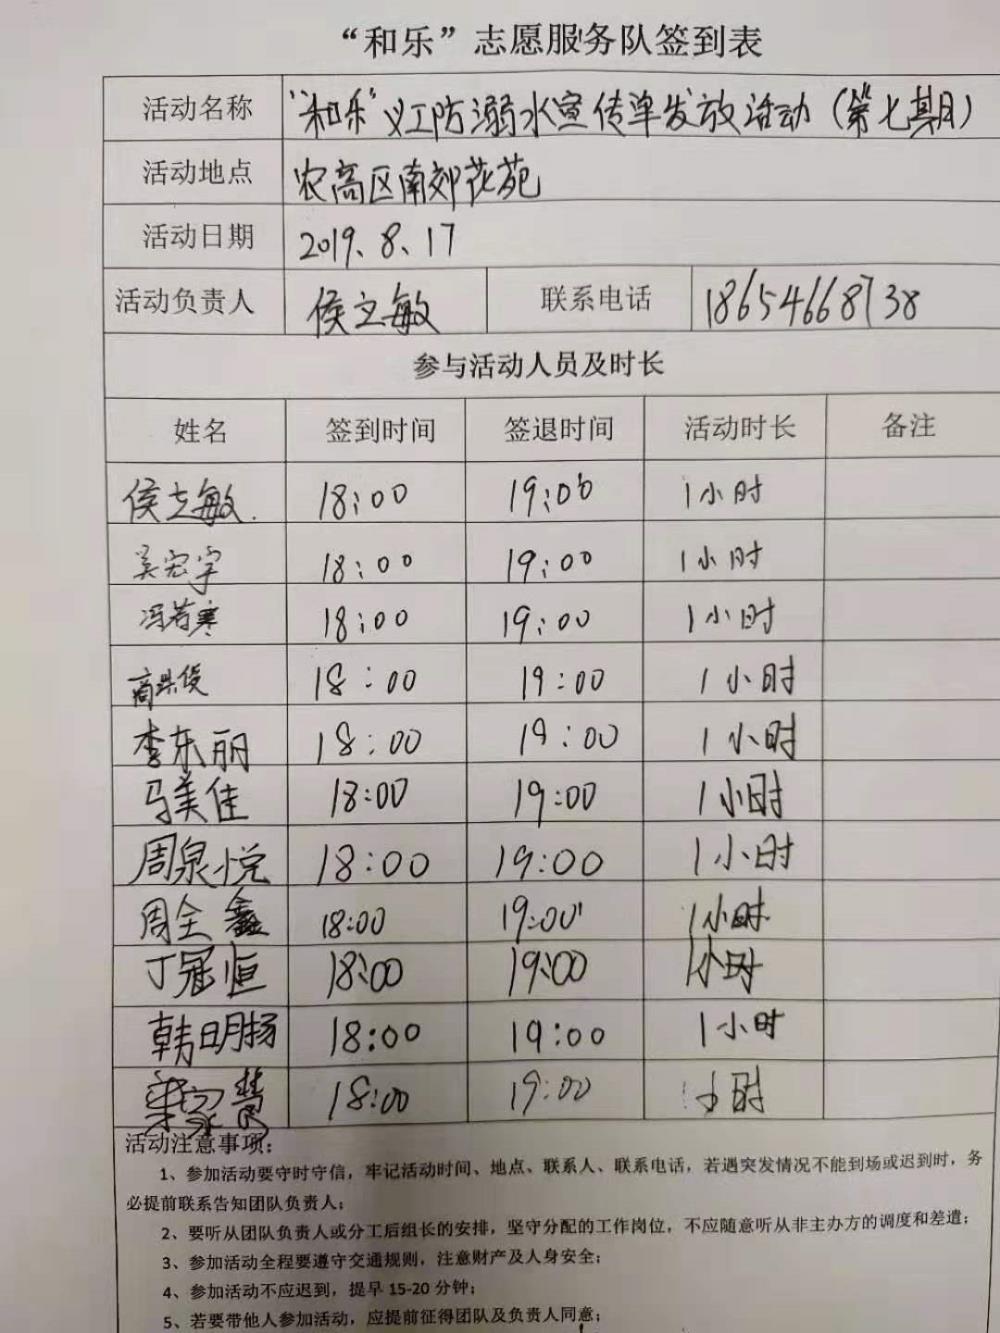 “和乐”志愿服务队签到表
活动名称 “和乐”义工防溺水宣传单发放活动（第七期）
活动地点 农高区南郊花苑
活动日期 2019、8、17
活动负责人 侯立敏 联系电话 18654668738
参与活动人员及时长
姓名 签到时间 签退时间 活动时长 备注
侯立敏. 18:00 19:00 1小时
吴宏宇 18:00 19:00 1小时
冯若寒 18:00 19:00 1小时
18:00 19:00 1小时
李东丽 18:00 19:00 1小时
马美佳 18:00 19:00 1小时
周泉悦 18:00 19:00 1小时
周全鑫 18:00 19:00 1小时
丁冠恒 18:00 19:00 1小时
韩明扬 18:00 19:00 1小时
梁家慧 18:00 19:00 1小时
活动注意事项：
1、参加活动要守时守信，牢记活动时间、地点、联系人、联系电话，若遇突发情况不能到场或迟到时，务
必提前联系告知团队负责人；
2、要听从团队负责人或分工后组长的安排，坚守分配的工作岗位，不应随意听从非主办方的调度和差遣；
3、参加活动全程要遵守交通规则，注意财产及人身安全；
4、参加活动不应迟到，提早 15-20 分钟；
5、若要带他人参加活动，应提前征得团队及负责人同意；